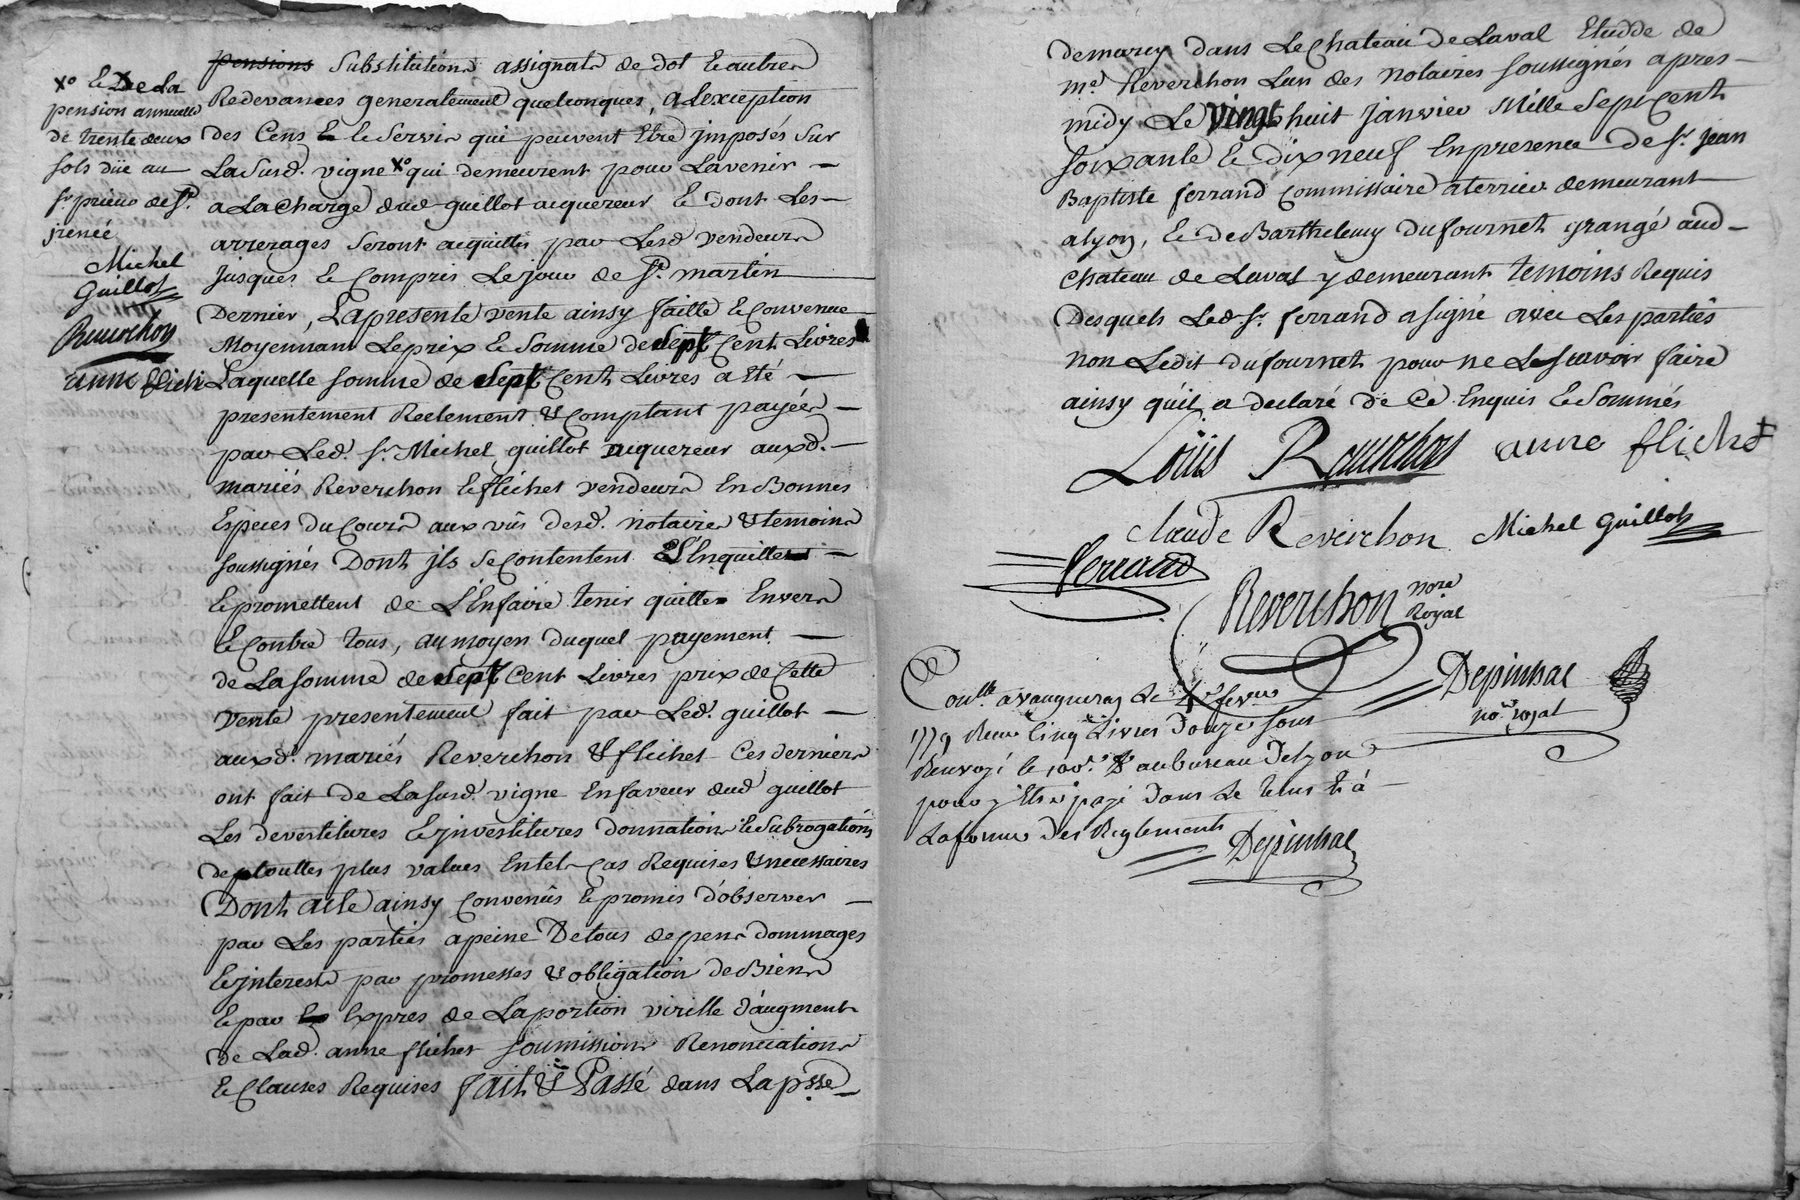 pensions Substitutions assignats de dot & autres
Redevances generalement quelconques, a Lexception
des Cens & le Servis qui peuvent Etre jmposés Sur
La Susd. vigne xo qui demeurent pour Lavenir —
a La Charge dud guillot acquereur & dont Les —
arrerages Seront acquittés par Lesd vendeurs
jusques & Compris Le jour de St. martin
Dernier, La presente vente ainsy faitte & Convenue
Moyennant Le prix & Somme de Sept Cent Livres
Laquelle somme de Sept Cent Livres a Eté —
presentement Reelement & Comptant payée —
par Led. Sr. Michel guillot acquereur auxd. —
mariés Reverchon & flichet vendeurs En Bonnes
Especes du Cours aux vûs desd. notaires & temoins
soussignés Dont jls Se Contentent & L'Enquittent —
& promettent de L'En faire tenir quitte Envers
& Contre tous, au moyen duquel payement —
de La somme de Sept Cent Livres prix de Cette
vente presentement fait par Led. guillot —
auxd. mariés Reverchon & flichet Ces derniers
ont fait de La Susd. vigne En faveur dud guillot
Les devestitures & jnvestitures donnations & Subrogations
de touttes plus values En tels Cas Requises & necessaires
Dont acte ainsy Convenûs & promis d'observer —
par Les parties a peine De tous depens dommages
& jnterests par promesses & obligation de Biens
& par Exprès de La portion virille d'augment
de Lad. anne flichet soumissions Renonciations
& Clauses Requises fait & Passé dans La psse —
xo & De La
pension annuelle
de trente deux
sols düe au
Sr. prieur de St.
jrenée
Michel
Guillot
Reverchon
anne flichet
de marcy dans Le Chateau de Laval Etudde de
me. Reverchon L'un des notaires soussignés apres —
midy Le Vingt huit janvier Mille Sept Cent
soixante & dix neuf En presence de Sr. jean
Baptiste ferrand Commissaire a terrier demeurant
a lyon, & de Barthelemy dufournet grangé aud —
Chateau de Laval y demeurant temoins Requis
Desquels Led Sr. ferrand a signé avec Les parties
non Ledit dufournet pour ne Le scavoir faire
ainsy qu'il a declaré de Ce Enquis & Sommés
Loüis Reverchon anne flichet
Claude Reverchon Michel Guillot
ferrand
Reverchon nore
Royal
Depinhac
no.re royal
Con.lle a vaugneray Le 4 fev.er
1779 Receu Cinq Livres Douze sous
Renvoyé le 100e. d. au bureau De lyon
pour y Etre payé dans Le tems & à —
La forme des Reglements
Depinhac